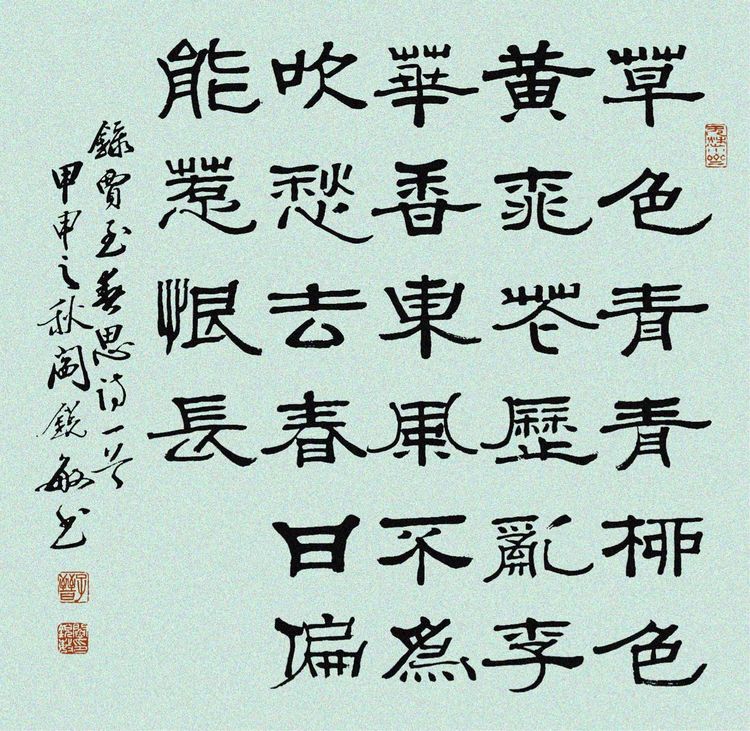 草色青青柳色
黄桃花歷亂李
華香東風不為
吹愁去春日偏
能惹恨長
錄賈至春思詩一首
甲申之秋閻銳敏書